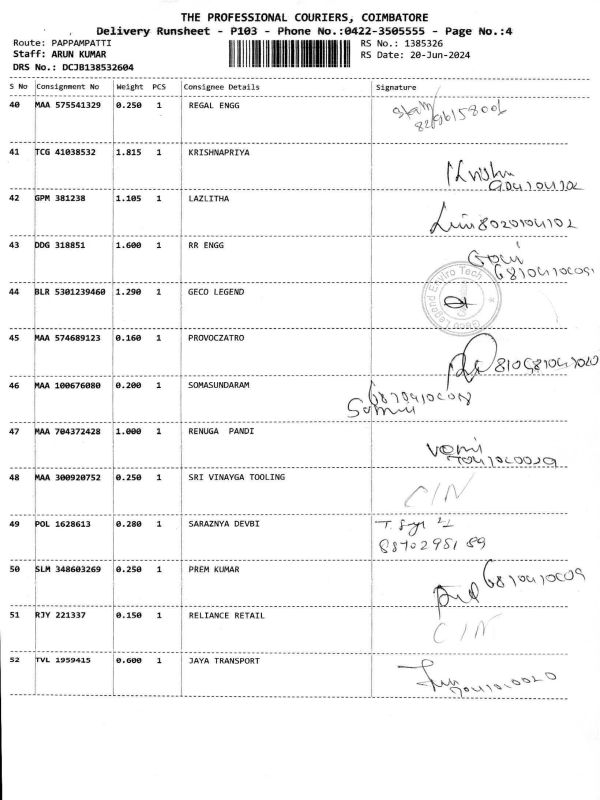 THE PROFESSIONAL COURIERS, COIMBATORE
Delivery Runsheet - P103 - Phone No.:0422-3505555 - Page No.:4
Route: PAPPAMPATTI RS No.: 1385326
Staff: ARUN KUMAR RS Date: 20-Jun-2024
DRS No.: DCJB138532604
S No Consignment No Weight PCS Consignee Details Signature
40 MAA 575541329 0.250 1 REGAL ENGG
41 TCG 41038532 1.815 1 KRISHNAPRIYA
42 GPM 381238 1.105 1 LAZLITHA
43 DDG 318851 1.600 1 RR ENGG
44 BLR 5301239460 1.290 1 GECO LEGEND
Geco Legend Enviro Tech
45 MAA 574689123 0.160 1 PROVOCZATRO
46 MAA 100676080 0.200 1 SOMASUNDARAM
47 MAA 704372428 1.000 1 RENUGA PANDI
48 MAA 300920752 0.250 1 SRI VINAYGA TOOLING
C/N
49 POL 1628613 0.280 1 SARAZNYA DEVBI
88702981 89
50 SLM 348603269 0.250 1 PREM KUMAR
51 RJY 221337 0.150 1 RELIANCE RETAIL
C/N
52 TVL 1959415 0.600 1 JAYA TRANSPORT